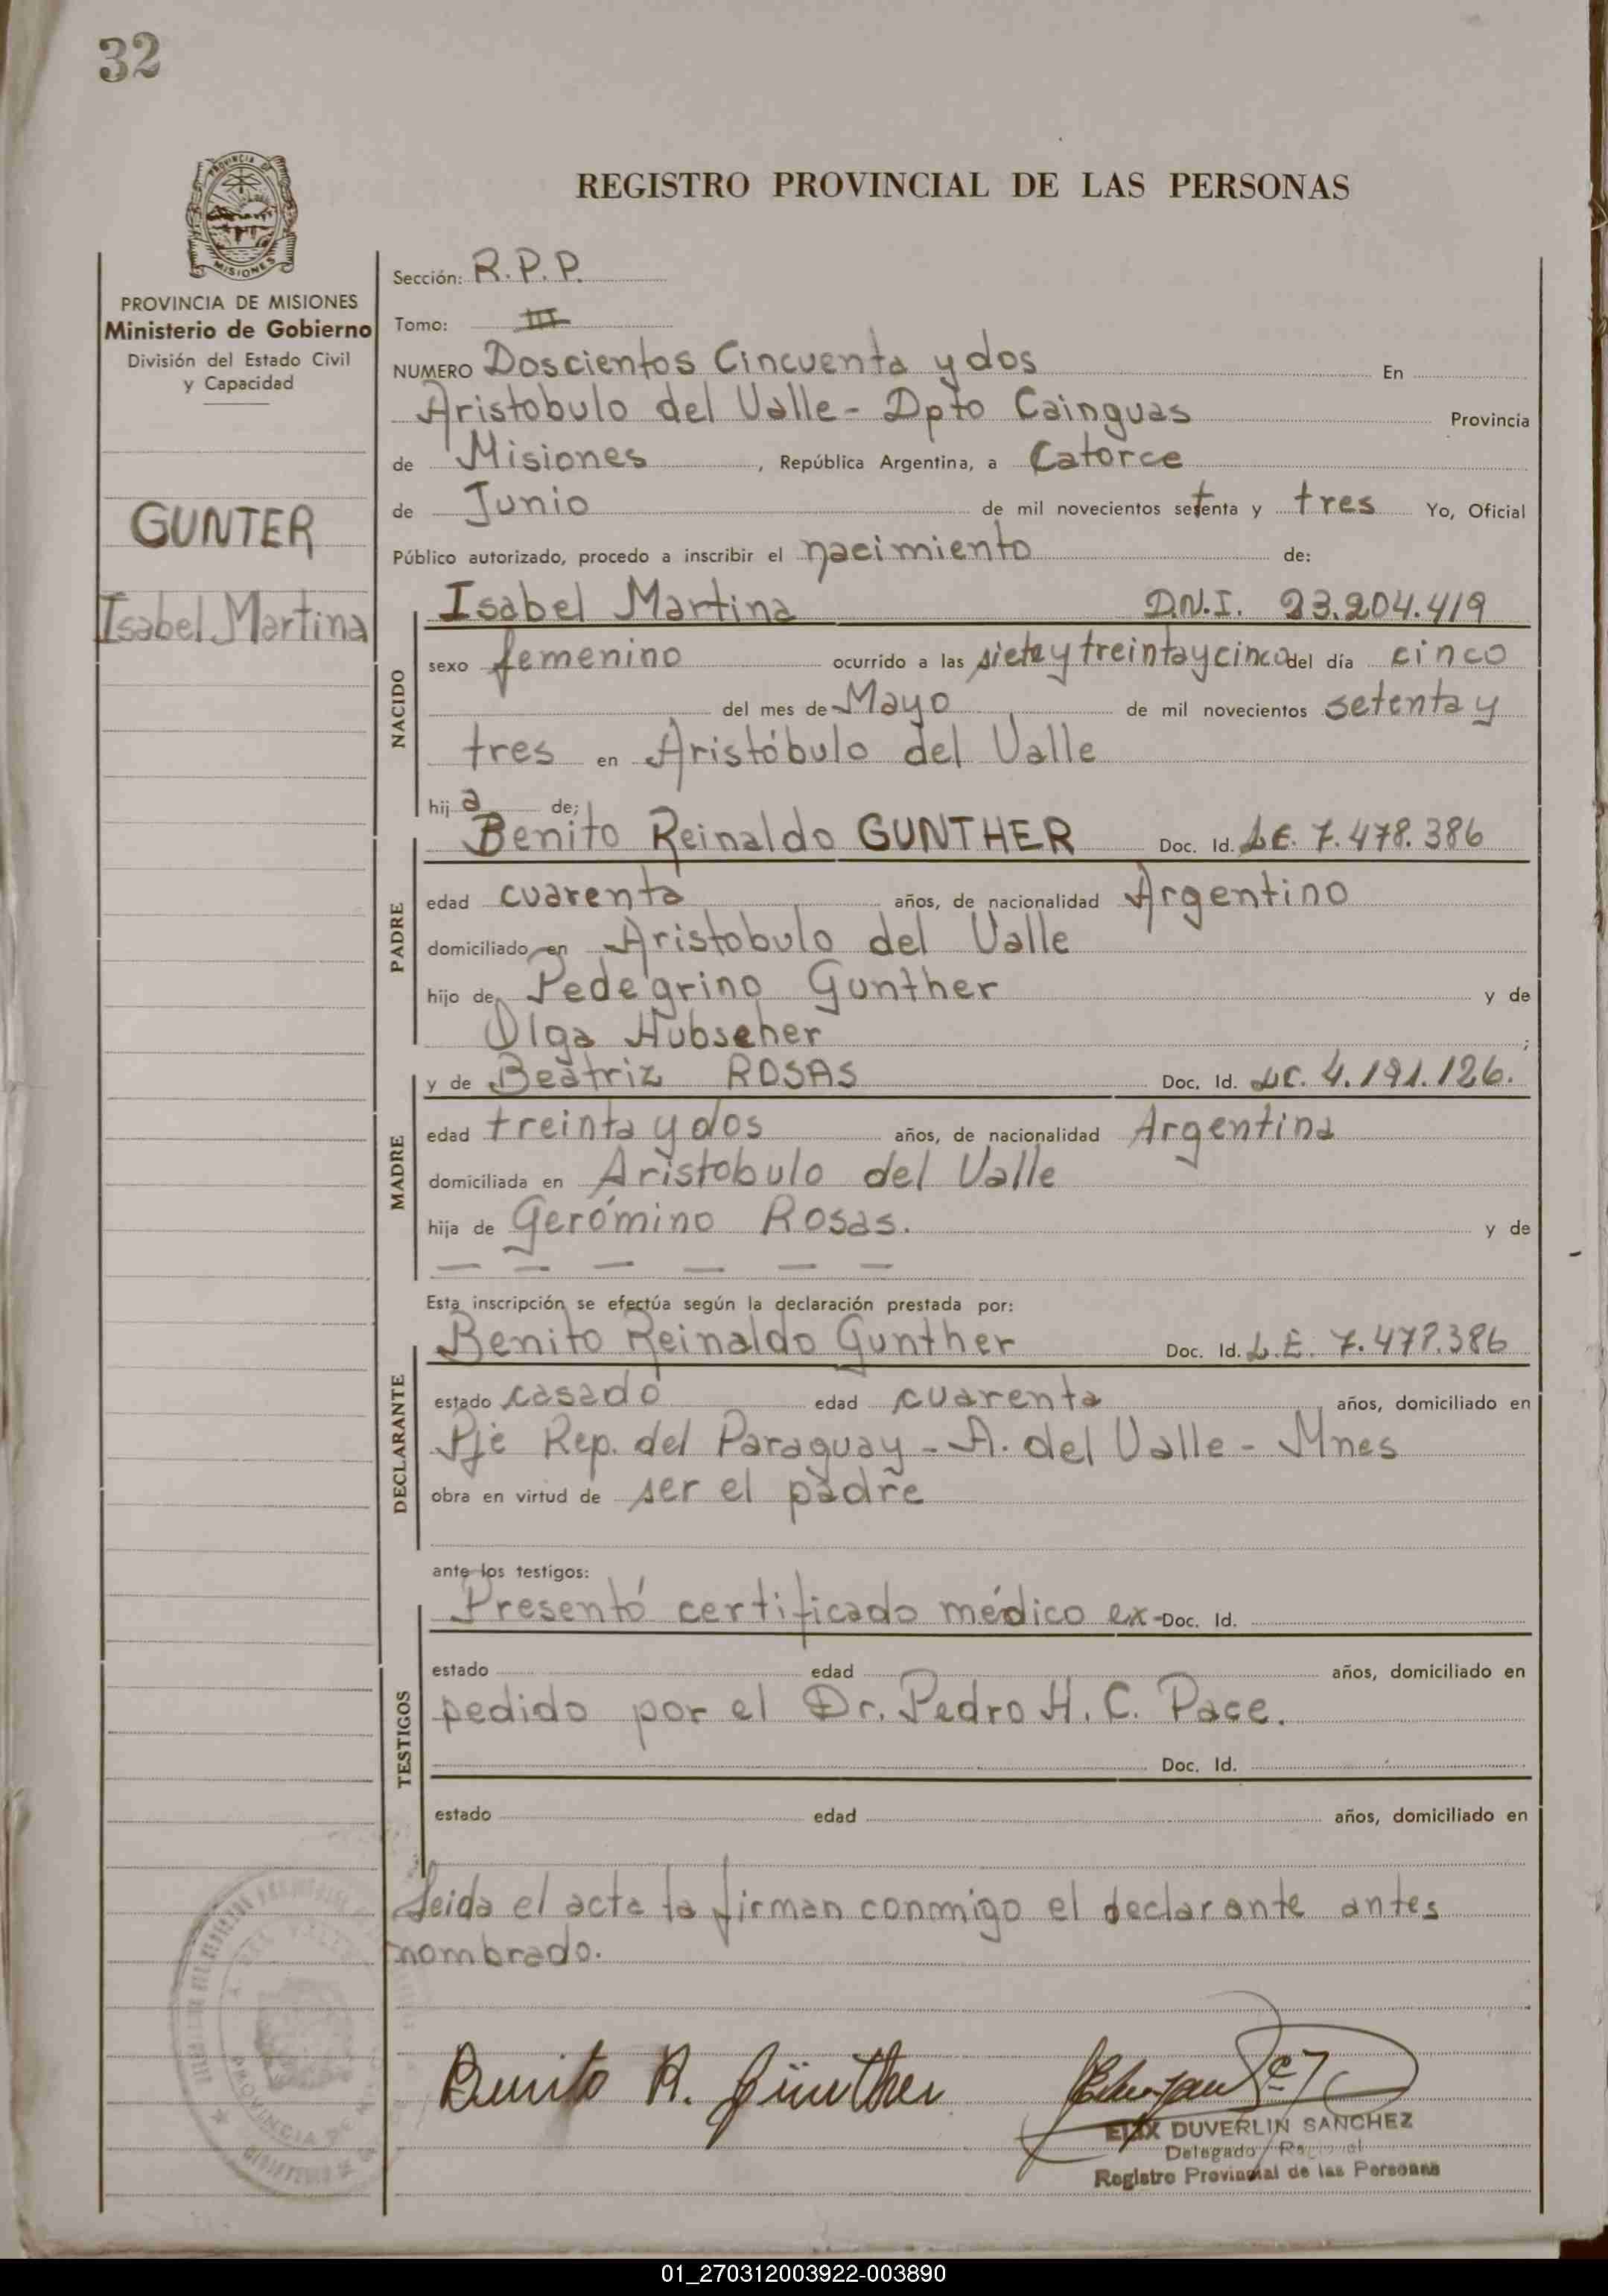 32
PROVINCIA DE
MISIONES
REGISTRO PROVINCIAL DE LAS PERSONAS
PROVINCIA DE MISIONES
Ministerio de Gobierno
División del Estado Civil
y Capacidad
GUNTER
Isabel Martina
Sección: R.P.P.
Tomo: III
NUMERO Doscientos Cincuenta y dos En
Aristobulo del Valle - Dpto Cainguas Provincia
de Misiones, República Argentina, a Catorce
de Junio de mil novecientos setenta y tres Yo, Oficial
Público autorizado, procedo a inscribir el nacimiento de:
NACIDO
Isabel Martina D.N.I. 23.204.419
sexo femenino ocurrido a las siete y treinta y cinco del día cinco
del mes de Mayo de mil novecientos setenta y
tres en Aristóbulo del Valle
hij a de;
PADRE
Benito Reinaldo GUNTHER Doc. Id. L.E. 7.478.386
edad cuarenta años, de nacionalidad Argentino
domiciliado en Aristobulo del Valle
hijo de Pedegrino Gunther y de
Olga Hubscher ;
MADRE
y de Beatriz ROSAS Doc. Id. L.C. 4.191.126.
edad treinta y dos años, de nacionalidad Argentina
domiciliada en Aristobulo del Valle
hija de Gerómino Rosas. y de
— — — — — —
Esta inscripción se efectúa según la declaración prestada por:
DECLARANTE
Benito Reinaldo Gunther Doc. Id. L.E. 7.478.386
estado casado edad cuarenta años, domiciliado en
Pje Rep. del Paraguay - A. del Valle - Mnes
obra en virtud de ser el padre
ante los testigos:
TESTIGOS
Presentó certificado médico ex- Doc. Id.
estado edad años, domiciliado en
pedido por el Dr. Pedro H. C. Pace.
Doc. Id.
estado edad años, domiciliado en
Leida el acta la firman conmigo el declarante antes
nombrado.
Benito R. Günther
ELIX DUVERLIN SANCHEZ
Delegado
Registro Provincial de las Personas
01_270312003922-003890